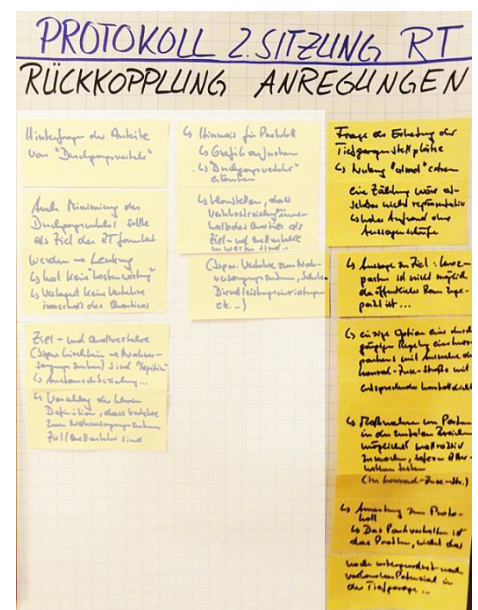 PROTOKOLL 2. SITZUNG RT
RÜCKKOPPLUNG ANREGUNGEN
Hinterfragen der Anteile
von "Durchgangsverkehr"
Auch Minimierung des
Durchgangsverkehrs sollte
als Ziel des RT formuliert
werden → Lenkung
↳ hat keine
↳ Verlagert keine Verkehre
innerhalb des Quartiers
Ziel- und Quellverkehre
(bspw. → Nahver-
sorgungszentrum) sind "legitim"
↳
↳ Vorschlag der klaren
Definition, dass Verkehre
zum Nahversorgungszentrum
Ziel/Quellverkehr sind
↳ Hinweis für Protokoll
↳ Grafik anpassen
↳ "Durchgangsverkehr"
erläutern
↳ Klarstellen, dass
Verkehrsbeziehungen inner-
halb des Quartiers als
Ziel- und Quellverkehre
zu werten sind
(bspw. Verkehre zum Nah-
versorgungszentrum, Schule,
Dienstleistungseinrichtungen
etc...)
Frage der Erhebung der
Tiefgaragenstellplätze
↳ Nutzung
eine Zählung wäre
schon nicht repräsentativ
↳ hoher Aufwand ohne
Aussageschärfe
↳ Aussage zu Ziel:
parken ist nicht möglich
da öffentlicher Raum
ist ...
↳ einzige Option eine durch-
gängige Regelung
parkens mit Ausnahme der
Konrad-Zuse-Straße mit
entsprechender Kontrolldichte
↳ Maßnahmen um Parken
in den zentralen Bereichen
möglichst unattraktiv
zu machen, sofern Alter-
nativen bestehen
(in Konrad-Zuse-Str.)
↳ Anmerkung zum Proto-
koll
↳ Das Parkverhalten ist
das Problem, nicht das
noch untergeordnet noch
vorhandenes Potenzial in
der Tiefgarage ...